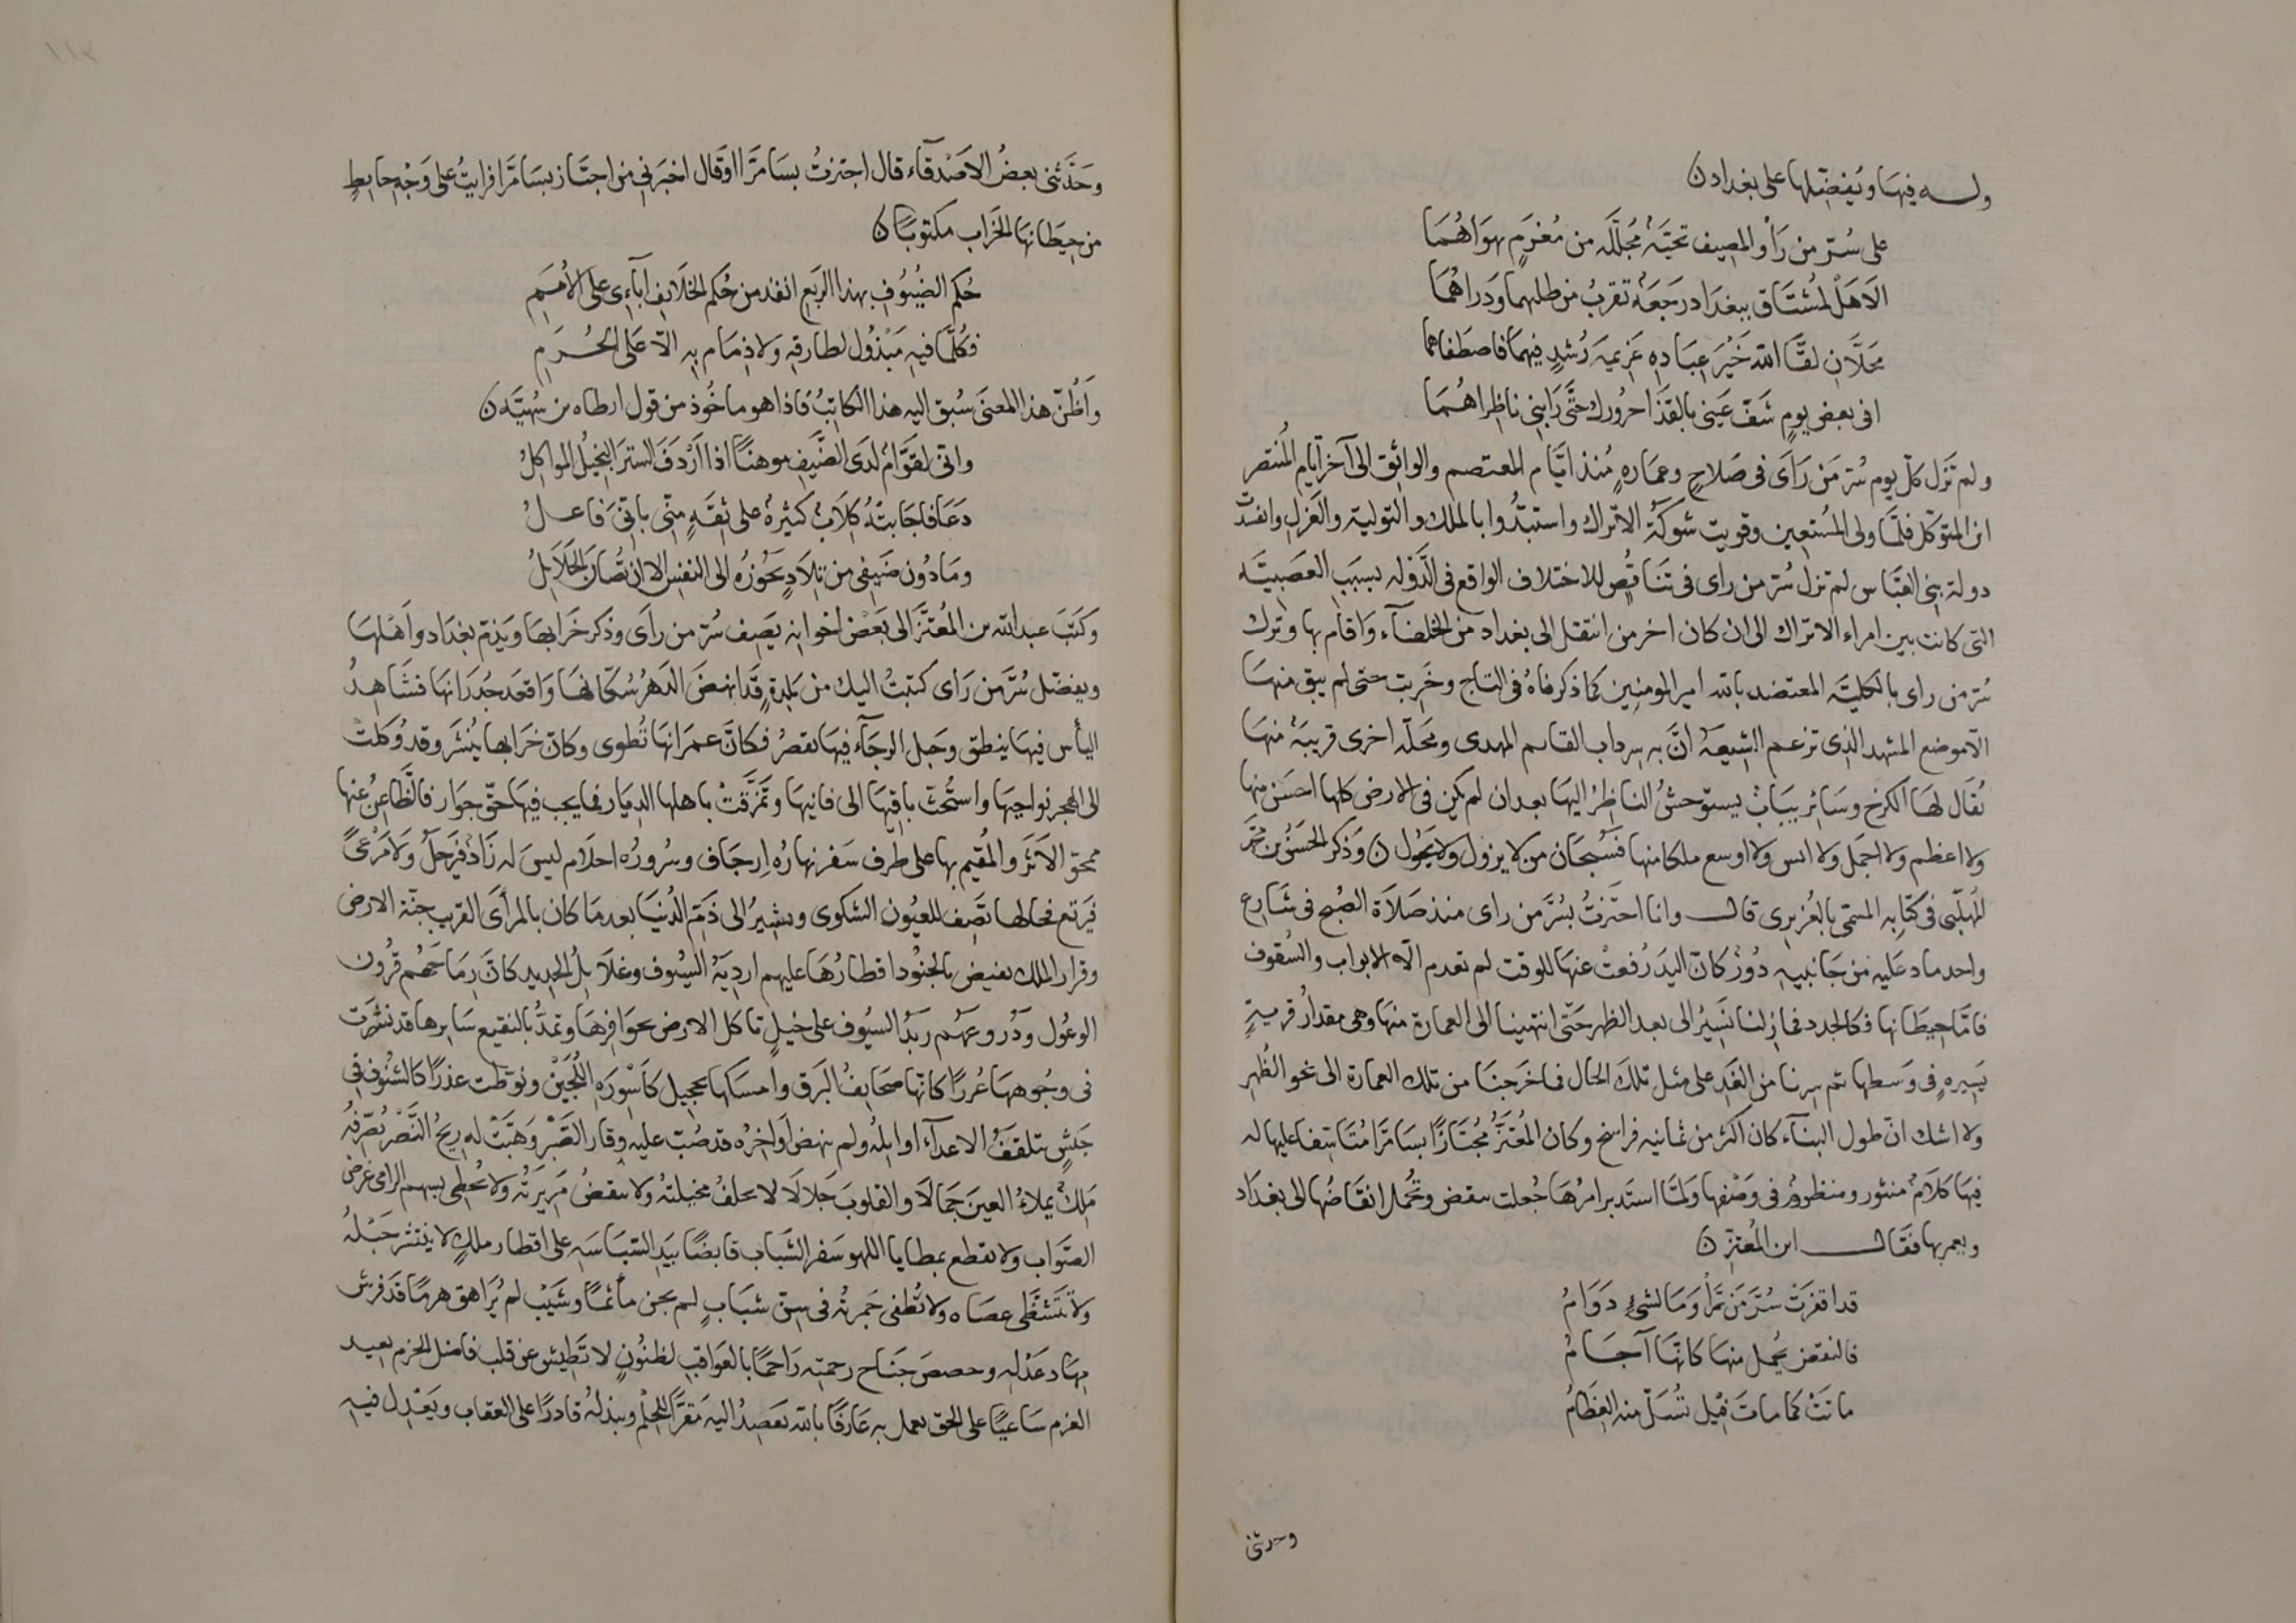 وله فيها ويفضلها على بغداد ن
على سر من رأ والمصيف تحيّة مجلّله من مغرم بهواهما
الا هل لمشتاق ببغداد رجعة تقرب من ظلهما وذراهما
محلّان لقّا الله خير عباده عزيمة رشد فيهما فاصطفاهما
افى بعض يوم شفّ عينى بالقذا حرورك حتّى رابنى ناظراهما
ولم تزل كلّ يوم سرّ من راى فى صلاح وعماره منذ ايّام المعتصم والواثق الى آخر ايّام المنتصر
ابن المتوكّل فلمّا ولى المستعين وقويت شوكة الاتراك واستبدّوا بالملك والتولية والعزل وانفسدت
دولة بنى العبّاس لم تزل سرّ من راى فى تناقص للاختلاف الواقع فى الدّوله بسبب العصبيّه
التى كانت بين امراء الاتراك الى ان كان اخر من انتقل الى بغداد من الخلفآء واقام بها وترك
سرّ من راى بالكليّه المعتضد بالله امير المومنين كما ذكرناه فى التاج وخربت حتى لم يبق منها
الّا موضع المشهد الذى تزعم الشيعة انّ به سرداب القاسم المهدى ومحلّه اخرى قريبة منها
يقال لها الكرخ وسائر يباب يستوحش الناظر اليها بعد ان لم يكن فى الارض كلها احسن منها
ولا اعظم ولا اجمل ولا انس ولا اوسع ملكا منها فسبحان من لا يزول ولا يحول ن وذكر الحسن بن محمّد
المهلّبى فى كتابه المسمّى بالعزيزى قال وانا اجتزت بسرّ من راى منذ صلاة الصبح فى شارع
واحد ماد عليه من جانبيه دور كانّ اليد رفعت عنها للوقت لم تعدم الّا الابواب والسقوف
فامّا حيطانها فكالجدد فما زلنا نسير الى بعد الظهر حتّى انتهينا الى العمارة منها وهى مقدار قرية
يسيره فى وسطها ثم سرنا من الغد على مثل تلك الحال فما خرجنا من تلك العمارة الى نحو الظهر
ولا اشك انّ طول البنآء كان اكثر من ثمانيه فراسخ وكان المعتزّ مجتازا بسامرّا متاسّفا عليها له
فيها كلام منثور ومنظوم فى وصفها ولمّا استدبر امرها جعلت تنقض وتحمل انقاضها الى بغداد
ويعمر بها فقال ابن المعتز ن
قد اقفرت سرّ من رّأ وما لشئ دوام
فالنقض يحمل منها كانّها آجام
ماتت كما مات فيل تسلّ منه العظام
وحدثنى
وحدّثنى بعض الاصدقآء قال اجتزت بسامرّا او قال اخبرنى من اجتاز بسامرّا فرايت على وجه حايط
من حيطانها الخراب مكتوبا ن
حكم الضيوف بهذا الربع انفذ من حكم الخلايف آبآءى على الامم
فكلّما فيه مبذول لطارقه ولا ذمام به الّا على الحرم
واظنّ هذا المعنى سبق اليه هذا الكاتب فاذا هو ماخوذ من قول ارطاه بن سهيّه ن
وانى لقوّام لدى الضيف موهنا اذا اردف الستر البخيل المواكل
دعا فاجابته كلاب كثيرة على ثقة منّى بانّى فاعل
وما دون ضيفى من تلاد يحوزه الى النفس الا ان تصان الحلايل
وكتب عبد الله بن المعتزّ الى بعض اخوانه يصف سرّ من راى وذكر خرابها ويذمّ بغداد واهلها
ويفضّل سرّ من راى كتبت اليك من بلدة قد انهض الدهر سكّانها واقعد جدرانها فشاهد
اليأس فيها ينطق وحبل الرجآء فيها يقصر فكانّ عمرانها تطوى وكانّ خرابها ينشر وقد وكلت
الى الهجر نواحيها واستحثّ باقيها الى فانيها وتمزّقت باهلها الديار فما يجب فيها حقّ جوار فالظّاعن عنها
ممحق الاثر والمقيم بها على طرف سفر نهاره ارجاف وسروره احلام ليس له زاد فيرحل ولا مرعى
فيرتع فحالها تصف للعيون الشكوى وتشير الى ذمّ الدنيا بعد ما كان بالمرأى القريب جنّة الارض
وقرار الملك تفيض بالجنود اقطارها عليهم اردية السيوف وغلايل الحديد كانّ رماحهم قرون
الوعول ودروعهم زبد السيوف على خيل تاكل الارض بحوافرها وتمدّ بالنقيع سايرها قد نشرت
فى وجوهها غررا كانّها صحايف البرق وامسكها تحجيل كاسورة اللجين ونوّطت عذرا كالشنوف فى
جيش يتلقّف الاعدآء اوايله ولم ينهض اواخره قد صبّ عليه وقار الصّبر وهبّت له ريح النّصر يصرّفه
ملك يملاء العين جمالا والقلوب جلالا لا تخلف مخيلته ولا ينقض مريرته ولا يخطى بسهم الراى غرض
الصّواب ولا يقطع بمطايا اللهو سفر الشباب قابضا بيد السّياسه على اقطار ملك لا ينتشر حبله
ولا تتشظّى عصاه ولا تطفى جمرته فى سنّ شباب لم يجن مأثما وشيب لم يراهق هرما قد فرش
مهاد عدله وخفض جناح رحمته راجما بالعواقب لظنون لا تطيش عن قلب فاضل الحزم بعيد
العزم ساعيا على الحق يعمل به عارفا بالله يقصد اليه مقرّا للحلم ويبذله قادرا على العقاب ويعدل فيه